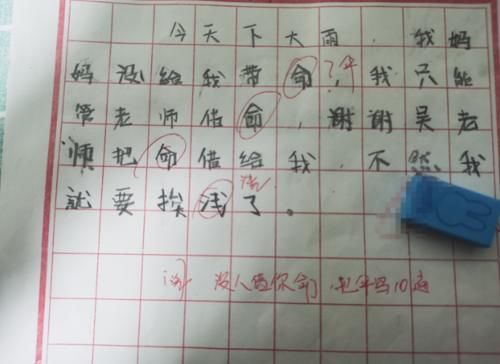 今天下大雨，我妈
妈没给我带命，我只能
?伞
管老师借命，谢谢吴老
师把命借给我，不然我
就要挨浅了。
没人借你命，把伞写10遍